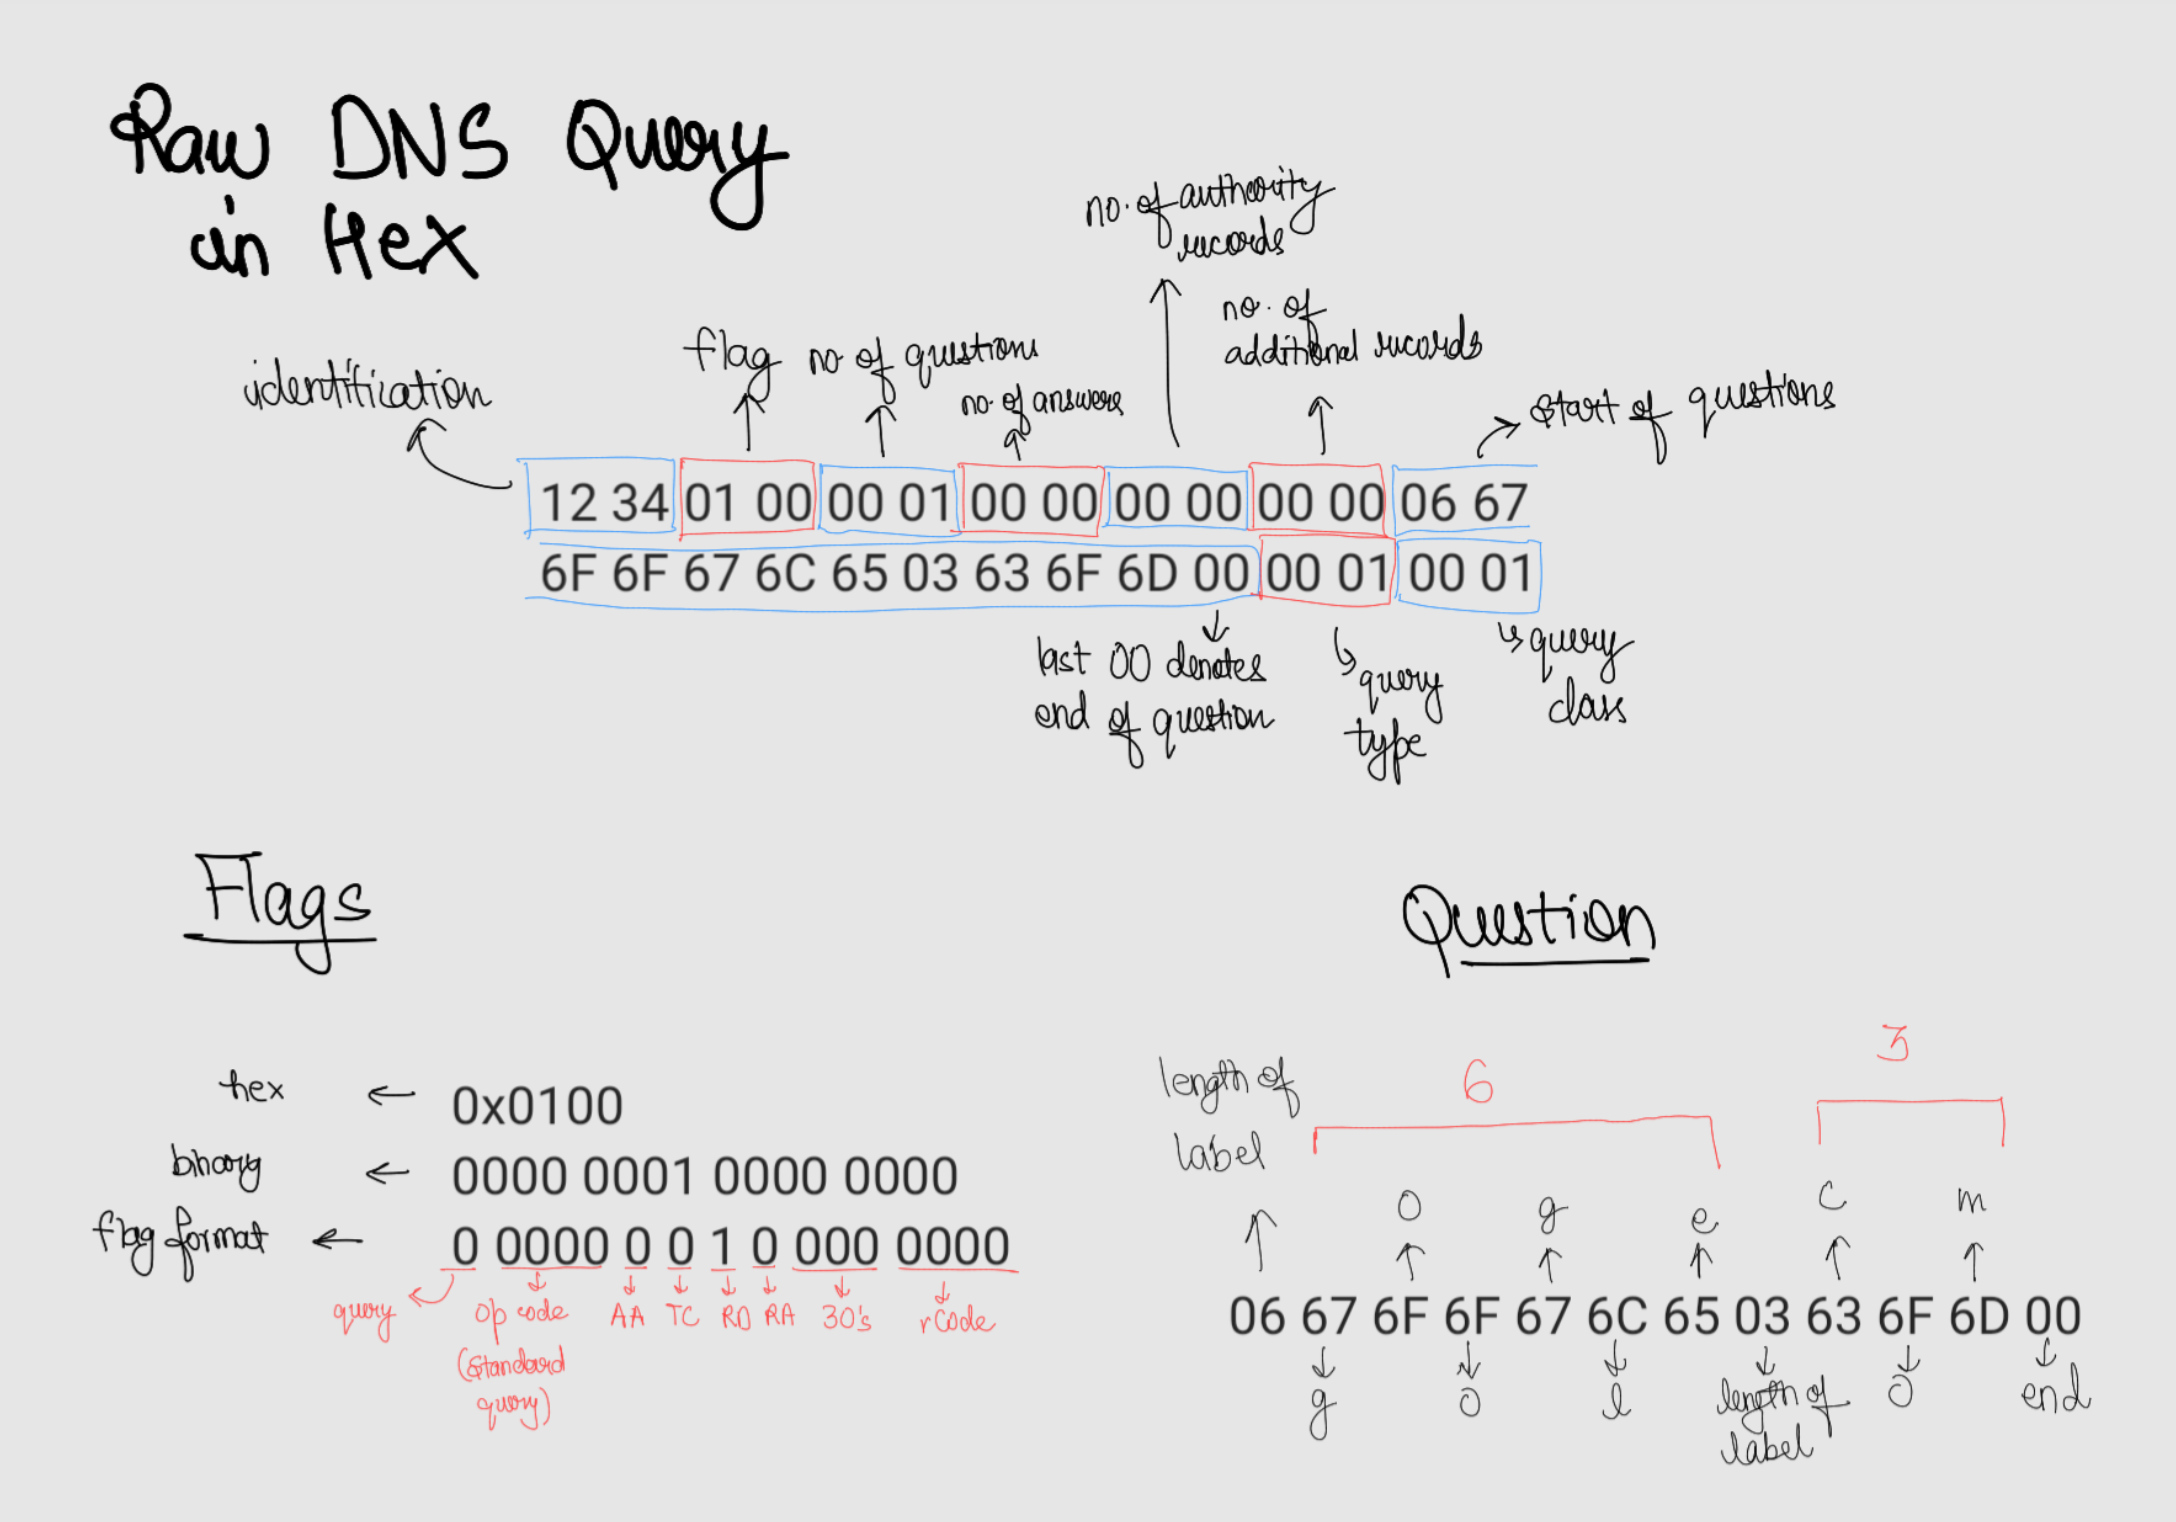 Raw DNS Query
in Hex
no. of authority
records
no. of
additional records
identification
flag
no of questions
no. of answers
start of questions
12 34 01 00 00 01 00 00 00 00 00 00 06 67
6F 6F 67 6C 65 03 63 6F 6D 00 00 01 00 01
last 00 denotes
end of question
query
type
query
class
Flags
hex ← 0x0100
binary ← 0000 0001 0000 0000
flag format ← 0 0000 0 0 1 0 000 0000
query
op code
(standard
query)
AA
TC
RD
RA
30's
rCode
Question
length of
label
6
3
o
g
e
c
m
06 67 6F 6F 67 6C 65 03 63 6F 6D 00
g
o
l
length of
label
o
end